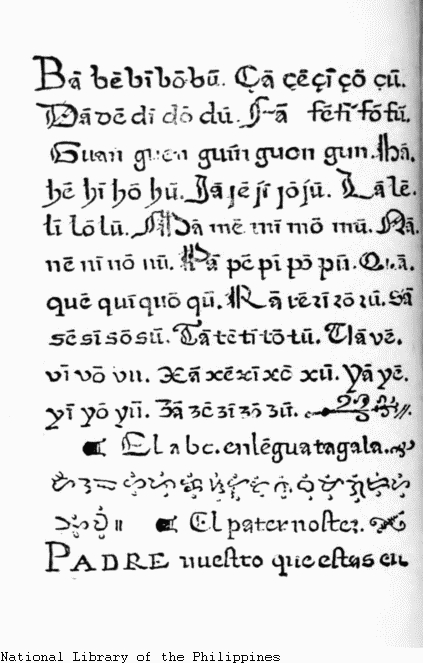 Bā bē bī bō bū. Çā çē çī çō çū.
Dā dē dī dō dū. Fā fē fī fō fū.
Guan guen guin guon gun. Hā.
hē hī hō hū. Jā jē jī jō jū. Lā lē.
lī lō lū. Mā mē mī mō mū. Nā.
nē nī nō nū. Pā pē pī pō pū. Quā.
quē quī quō qū. Rā rē rī rō rū. Sā
sē sī sō sū. Tā tē tī tō tū. Vā vē.
vī vō vū. Xā xē xī xō xū. Yā yē.
yī yō yū. Zā zē zī zō zū.
El abc. en lēgua tagala.
El pater noster.
PADRE nuestro que estas en
National Library of the Philippines